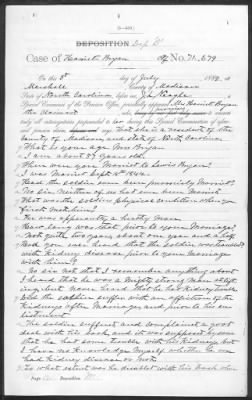 DEPOSITION Dep B
Case of Harriet Bryan No. 71,579
On this 5th day of July 1889, at
Marshall County of Madison
State of North Carolina before me
Special Examiner of the Pension Office, personally appeared Mrs Harriet Bryan
the claimant who, being by me first duly sworn to answer
truly all interrogatories propounded to her during this Special Examination of afore-
said pension claim, deposes and says: That she is a resident of the
County of Madison and State of North Carolina
What is your age Mrs Bryan
I am about years old.
When were you Married to Lewis Bryan?
I was Married Sept
Had the soldier been previously Married?
No Sir. Neither of us had been Married
What was the soldiers physical condition when you
first met him?
He was apparently a hearty man
How long was that prior to your Marriage
Not quite two years about one year and a half
Did you ever heard that the soldier was troubled
with Kidney disease prior to your Marriage
with him?
No sir not that I remember anything about
I heard he was a Mighty strong Man
never heard that he had Kidney trouble
Did the soldier suffer with an affection of the
Kidneys after Marriage and prior to his en-
listment
The soldier suffered and complained a good
deal with his back and it was supposed by some
that he had some trouble with his Kidneys but
I have no knowledge Myself whether he ever
had Kidney disease or not.
To what extent was he disabled with his back when
Page Deposition